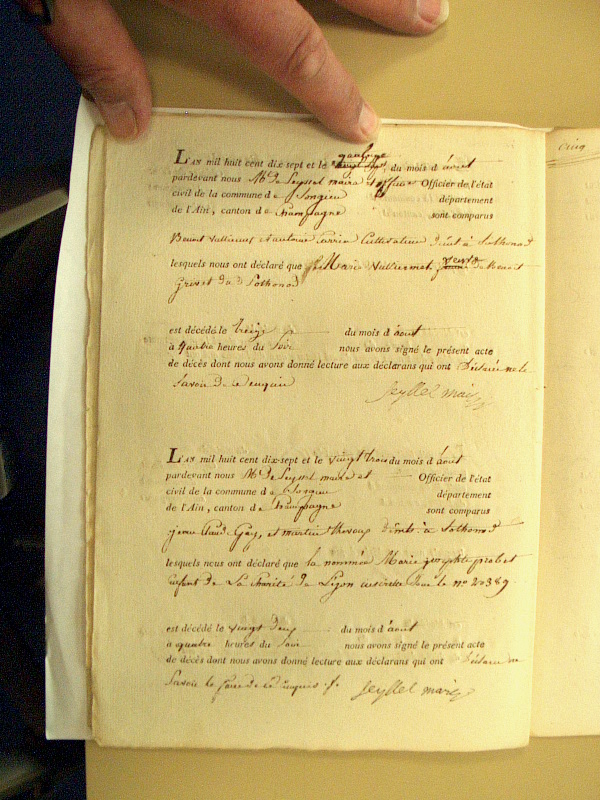 cinq
L'AN mil huit cent dix-sept et le quatorze du mois d'août
pardevant nous Mr De Seyssel maire et officier Officier de l'état
civil de la commune de Songieu département
de l'Ain, canton de Champagne sont comparus
Benoit Vullierme et Cultivateur à Sothonod
lesquels nous ont déclaré que Marie Vuillermet veuve de Benoit
de Sothonod
est décédé le treize du mois d'août
à quatre heures du soir nous avons signé le présent acte
de décès dont nous avons donné lecture aux déclarans qui ont déclaré ne le
savoir de ce enquis
Seyssel maire
L'AN mil huit cent dix-sept et le vingt trois du mois d'août
pardevant nous Mr De Seyssel maire et Officier de l'état
civil de la commune de Songieu département
de l'Ain, canton de Champagne sont comparus
Gay, et martin à Sothonod
lesquels nous ont déclaré que la nommée Marie
enfant de La Charité de Lyon sous le no 20389
est décédé le vingt deux du mois d'août
à quatre heures du soir nous avons signé le présent acte
de décès dont nous avons donné lecture aux déclarans qui ont déclaré ne
savoir le faire de ce enquis
Seyssel maire